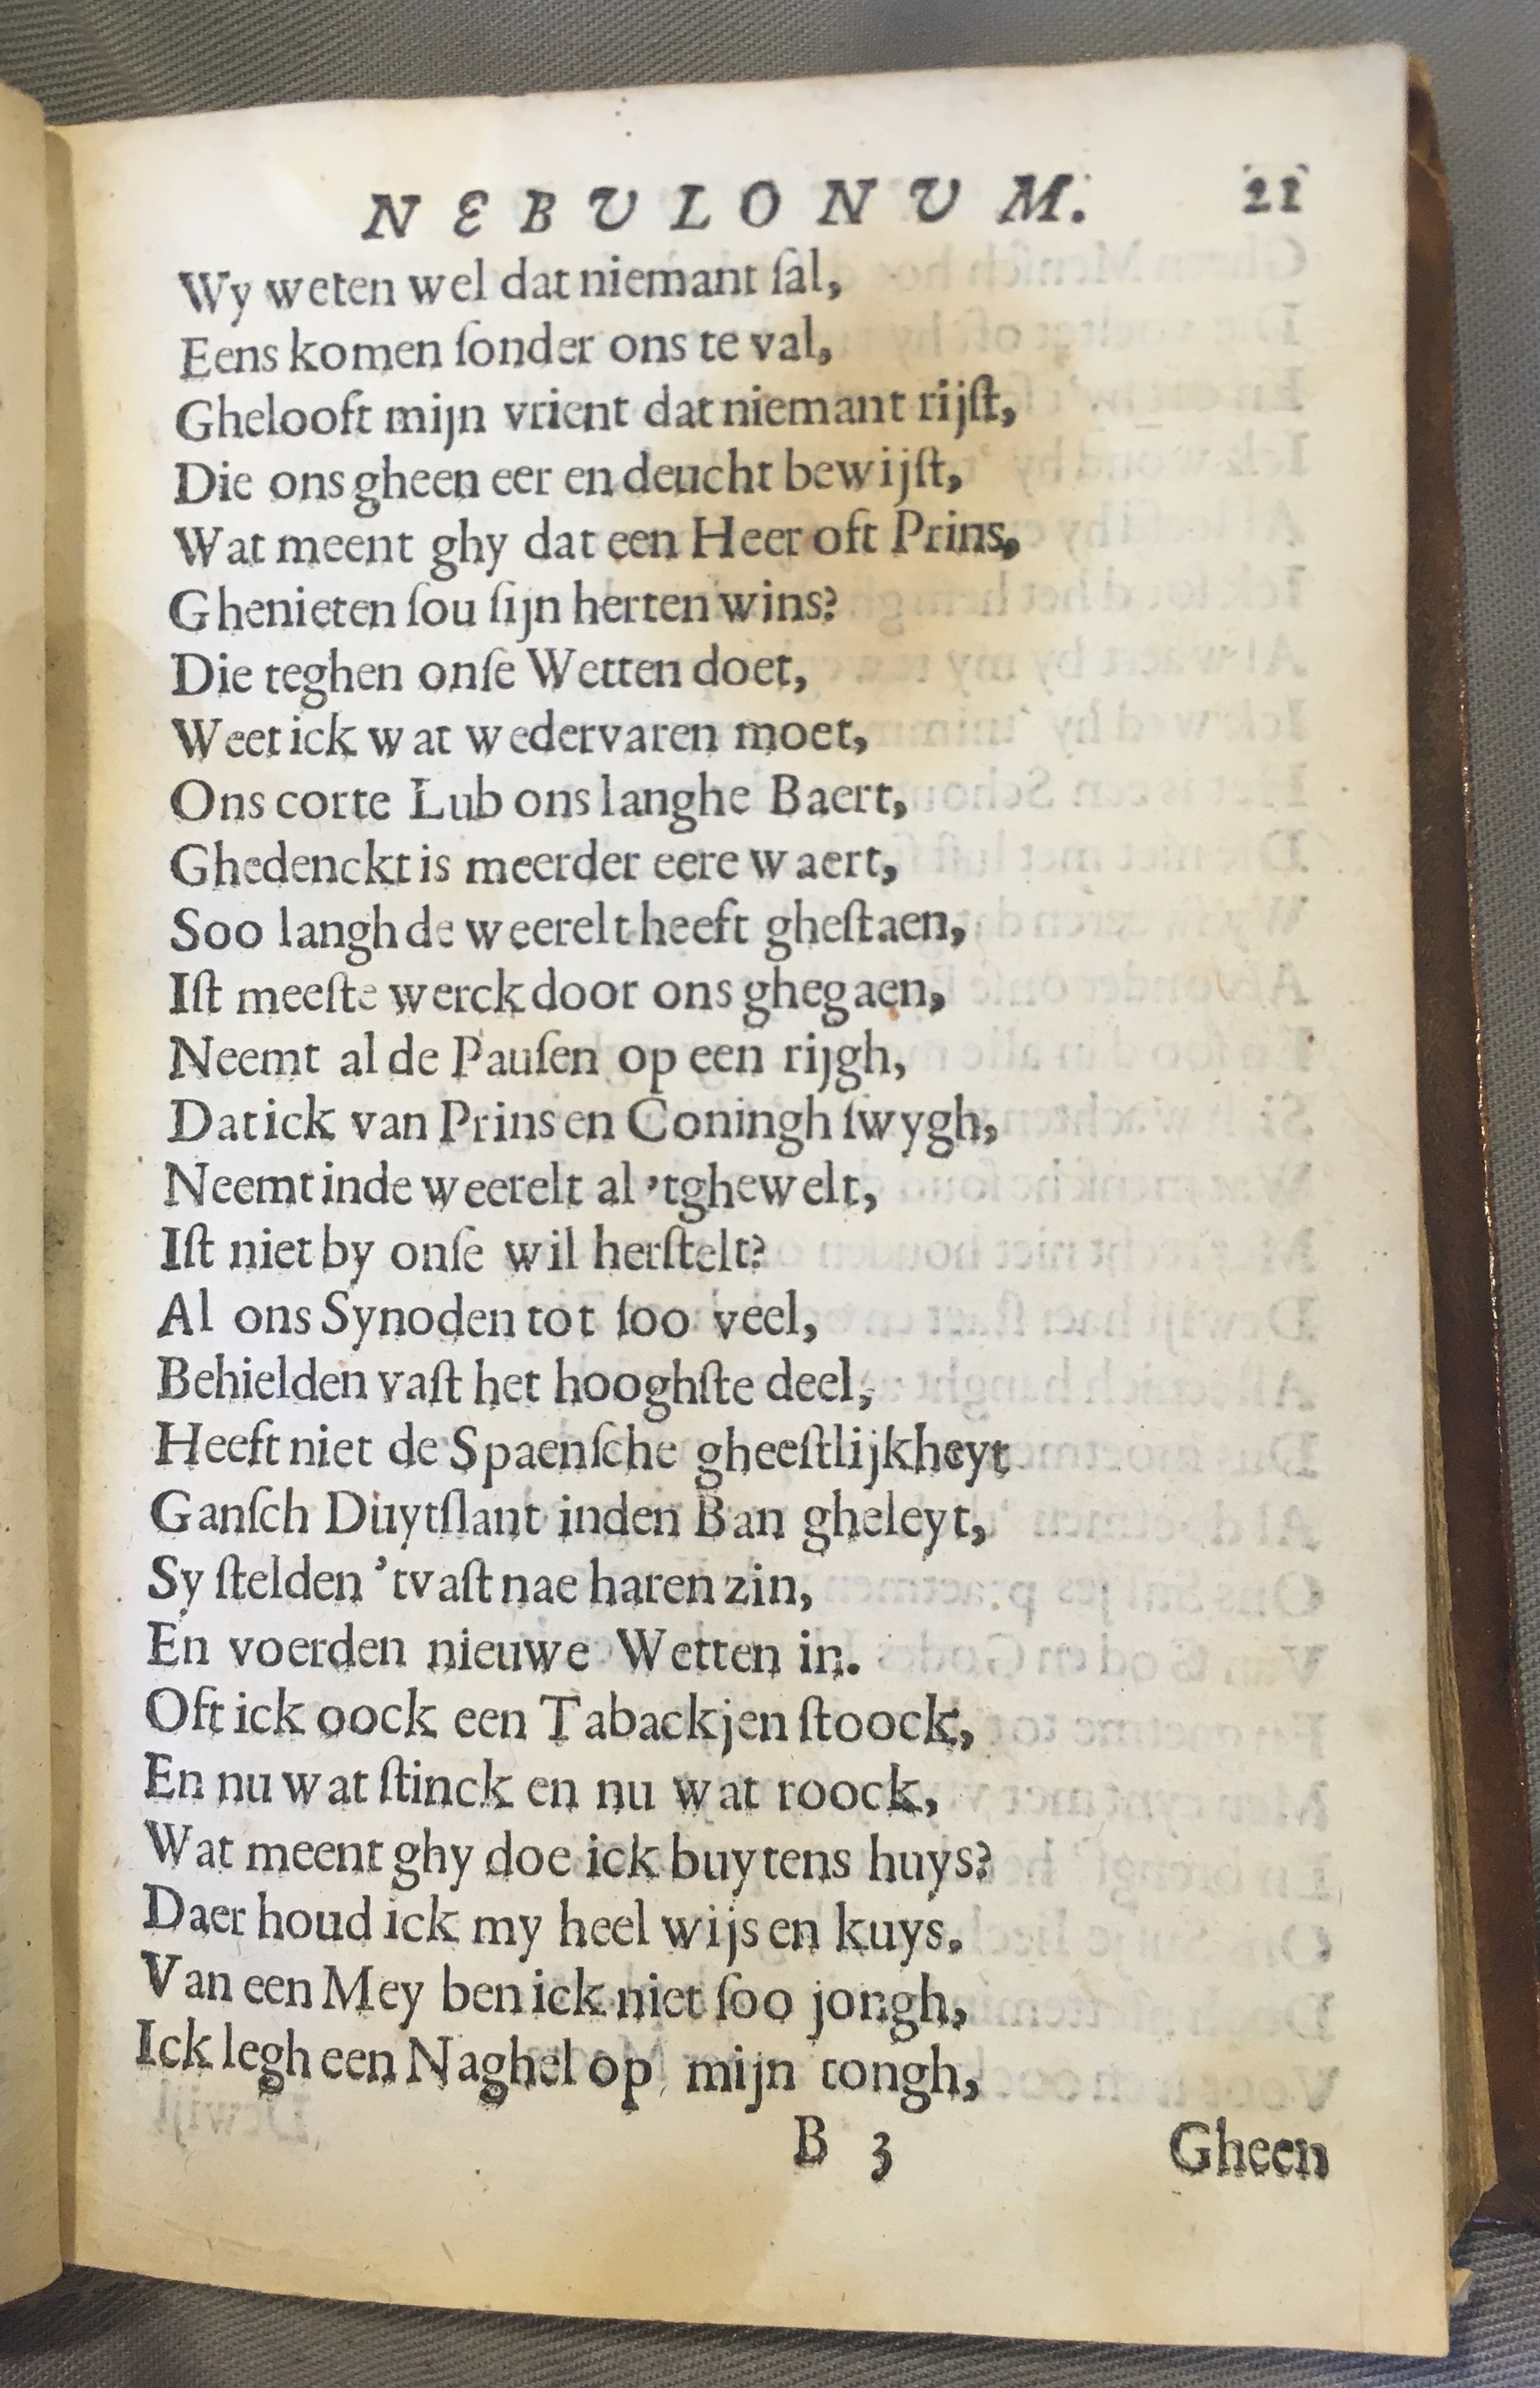 NEBULONUM. 21
Wy weten wel dat niemant ſal,
Eens komen ſonder ons te val,
Ghelooft mijn vrient dat niemant rijſt,
Die ons gheen eer en deucht bewijſt,
Wat meent ghy dat een Heer oft Prins,
Ghenieten ſou ſijn herten wins?
Die teghen onſe Wetten doet,
Weet ick wat wedervaren moet,
Ons corte Lub ons langhe Baert,
Ghedenckt is meerder eere waert,
Soo langh de weerelt heeft gheſtaen,
Iſt meeſte werck door ons ghegaen,
Neemt al de Pauſen op een rijgh,
Dat ick van Prins en Coningh ſwygh,
Neemt inde weerelt al 'tghewelt,
Iſt niet by onſe wil herſtelt?
Al ons Synoden tot ſoo veel,
Behielden vaſt het hooghſte deel,
Heeft niet de Spaenſche gheeſtlijkheyt
Ganſch Duytſlant inden Ban gheleyt,
Sy ſtelden 'tvaſt nae haren zin,
En voerden nieuwe Wetten in.
Oft ick oock een Tabackjen ſtoock,
En nu wat ſtinck en nu wat roock,
Wat meent ghy doe ick buytens huys?
Daer houd ick my heel wijs en kuys.
Van een Mey ben ick niet ſoo jongh,
Ick legh een Naghel op mijn tongh,
B 3 Gheen